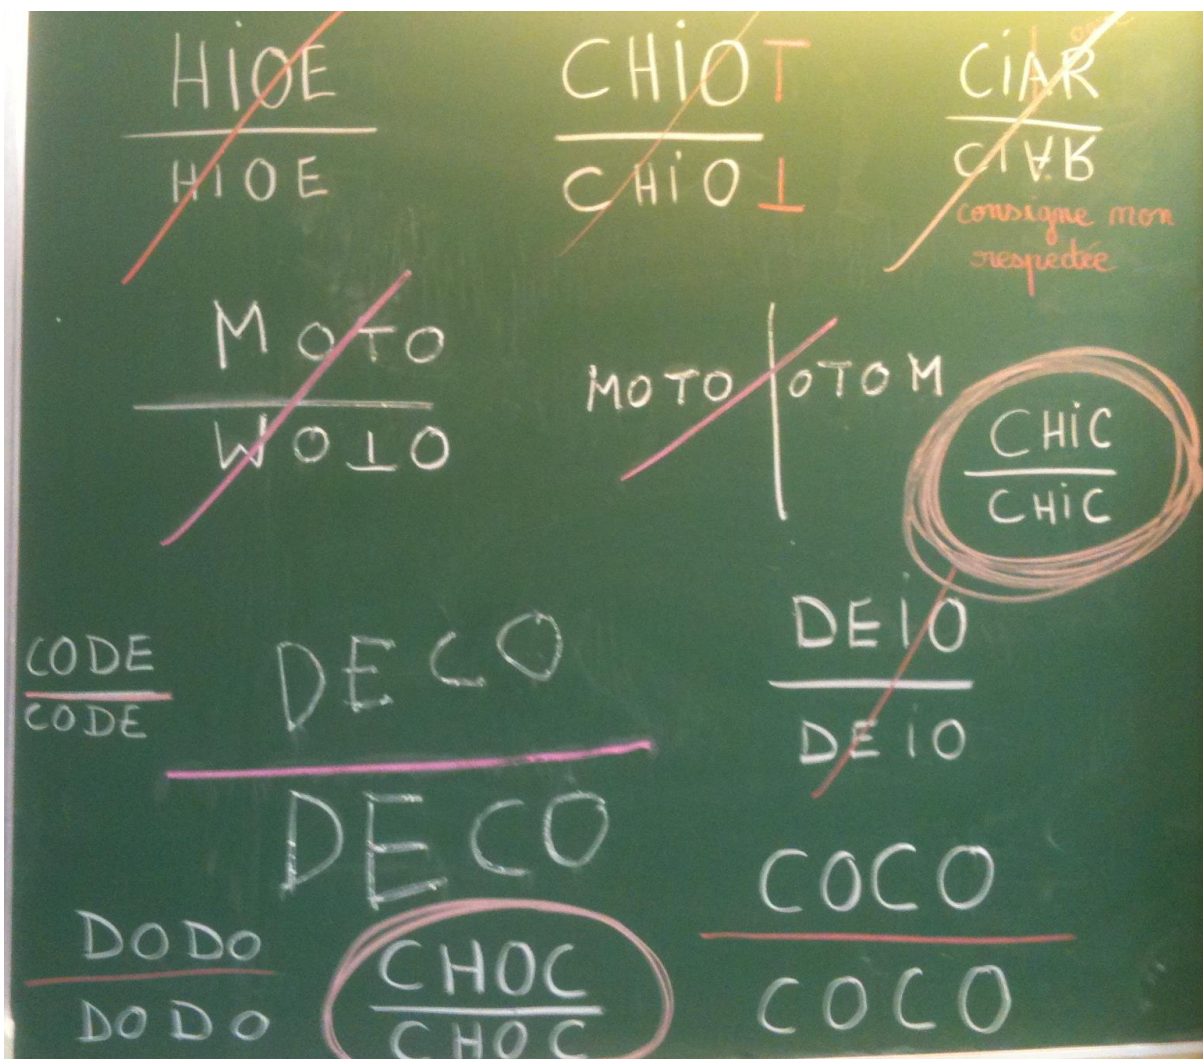 HiOE
HiOE
CHiOT
CHiO⊥
CiAR
CI∀ᖉ
consigne mon
respectée
MOTO
WO⊥O
MOTO | OTOM
CHiC
CHiC
CODE
CODE
DECO
DECO
DEiO
DEiO
COCO
COCO
DODO
DODO
CHOC
CHOC